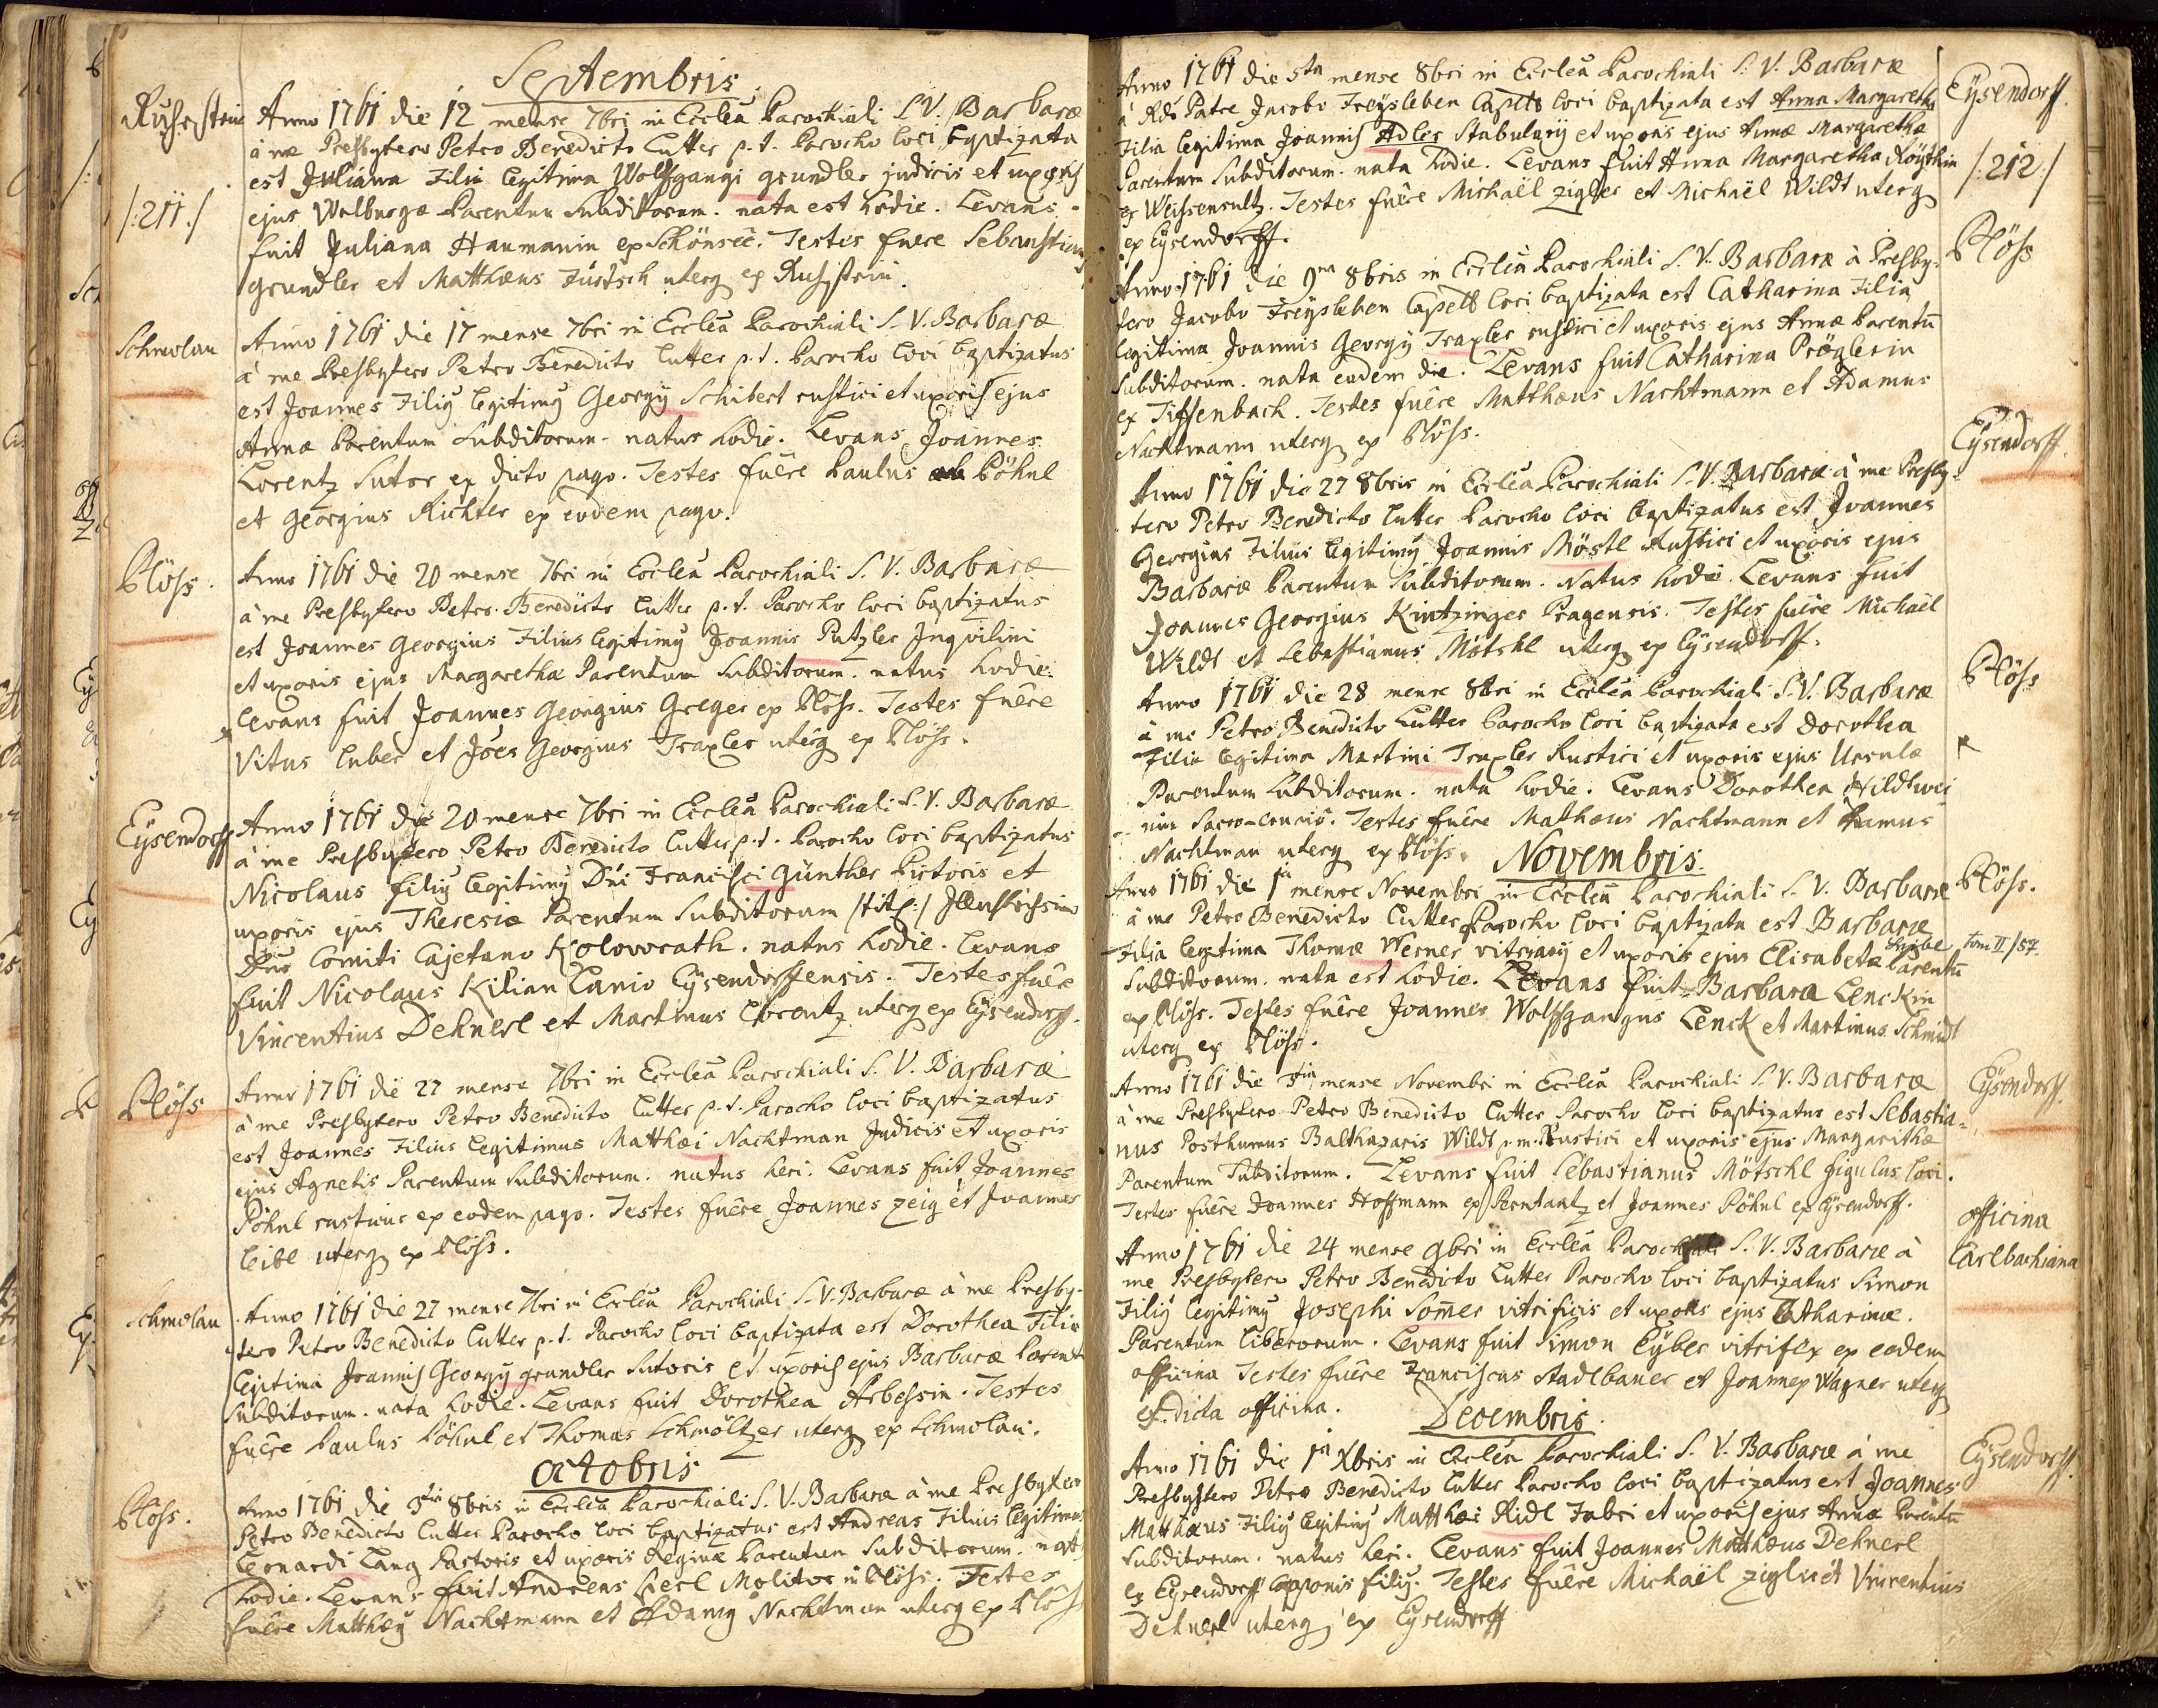 Septembris
Ruhstein
Anno 1761 die 12 mense 7bri in Ecclea Parochiali S. V. Barbaræ
à me Presbytero Petro Benedicto Lutter p. t. Parocho loci baptizata
est Juliana Filia legitima Wolfgangi grundler judicis et uxoris
/:211:/
ejus Walburgæ Parentum Subditorum. nata est hodie. Levans
fuit Juliana Haumanin ex Schönseê. Testes fuere Sebastianus
grundler et Matthæus Fürtsch uterq ex Ruhstein.
Schmolau
Anno 1761 die 17 mense 7bri in Ecclea Parochiali S. V. Barbaræ
à me Presbytero Petro Benedicto Lutter p. t. Parocho loci baptizatus
est Joannes Filiy legitimy Georgy Schibert rustici et uxoris ejus
Annæ Parentum Subditorum. natus hodie. Levans Joannes
Lorentz Sutor ex dicto pago. Testes fuêre Paulus Pöhnl
et Georgius Richter ex eodem pago.
Plöss.
Anno 1761 die 20 mense 7bri in Ecclea Parochiali S. V. Barbaræ
à me Presbytero Petro Benedicto Lutter p. t. Parocho loci baptizatus
est Joannes Georgius Filius legitimy Joannis Putzler Inqvilini
et uxoris ejus Margarethæ Parentum Subditorum. natus hodie.
Levans fuit Joannes Georgius Greger ex Plöss. Testes fuêre
Vitus Luber et Joês Georgius Traxler uterq ex Plöss.
Eysendorff
Anno 1761 die 20 mense 7bri in Ecclea Parochiali S. V. Barbaræ
à me Presbytero Petro Benedicto Lutter p. t. Parocho loci baptizatus
Nicolaus filiy legitimy Dni Francisci Günther Pictoris et
uxoris ejus Theresiæ Parentum Subditorum /tit:/ Illustrissimo
Dno Comiti Cajetano Kolowrath. natus hodie. Levans
fuit Nicolaus Kilian Lanio Eysendorffensis. Testes fuêre
Vincentius Dehnerl et Martinus Lorentz uterq ex Eysendorff.
Plöss
Anno 1761 die 27 mense 7bri in Ecclea Parochiali S. V. Barbaræ
à me Presbytero Petro Benedicto Lutter p. t. Parocho loci baptizatus
est Joannes Filius legitimus Matthæi Nachtman Judicis et uxoris
ejus Agnetis Parentum Subditorum. natus heri. Levans fuit Joannes
Pöhnl rusticus ex eodem pago. Testes fuêre Joannes Zeig et Joannes
Leibl uterq ex Plöss.
Schmolau
Anno 1761 die 27 mense 7bri in Ecclea Parochiali S. V. Barbaræ à me Presby-
tero Petro Benedicto Lutter p. t. Parocho loci baptizata est Dorothea Filia
legitima Joannis Georgy grundler Sutoris et uxoris ejus Barbaræ Parent
Subditorum. nata hodie. Levans fuit Dorothea Arbessin. Testes
fuêre Paulus Pöhnl et Thomas Schmöltzer uterq ex Schmolau.
Octobris
Plöss.
Anno 1761 die 3tia 8bris in Ecclea Parochiali S. V. Barbaræ à me Presbytero
Petro Benedicto Lutter Parocho loci baptizatus est Andreas Filius legitimus
Leonardi Lang Pastoris et uxoris Reginæ Parentum Subditorum. nat
hodie. Levans fuit Andreas Herl Molitor in Plöss. Testes
fuêre Matthæy Nachtmann et Adamy Nachtman uterq ex Plöss
Anno 1761 die 5ta mense 8bri in Ecclea Parochiali S. V. Barbaræ
Eysendorff.
à Rdo Patre Jacobo Freysleben Capello loci baptizata est Anna Margaretha
Filia legitima Joannis Adler Stabulary et uxoris ejus Annæ Margarethæ
Parentum Subditorum. nata hodie. Levans fuit Anna Margaretha Röysthin
/:212:/
ex Weissensultz. Testes fuêre Michaël Zigler et Michaël Wildt uterq
ex Eysendorff.
Plöss
Anno 1761 die 9na 8bris in Ecclea Parochiali S. V. Barbaræ à Presby-
tero Jacobo Freysleben Capell loci baptizata est Catharina Filia
legitima Joannis Georgy Traxler rustici et uxoris ejus Annæ Parentū
Subditorum. nata eodem die. Levans fuit Catharina Pröglerin
ex Tiffenbach. Testes fuêre Matthæus Nachtmann et Adamus
Nachtmann uterq ex Plöss.
Eysendorff.
Anno 1761 die 27 8bris in Ecclea Parochiali S. V. Barbaræ à me Presby-
tero Petro Benedicto Lutter Parocho loci baptizatus est Joannes
Georgius Filius legitimy Joannis Möstl Rustici et uxoris ejus
Barbaræ Parentum Subditorum. Natus hodie. Levans fuit
Joannes Georgius Kintzinger Pragensis. Testes fuêre Michaël
Wildt et Sebastianus Mötschl uterq ex Eysendorff.
Plöss
Anno 1761 die 28 mense 8bri in Ecclea Parochiali S. V. Barbaræ
à me Petro Benedicto Lutter Parocho loci baptizata est Dorothea
Filia legitima Martini Traxler Rustici et uxoris ejus Ursulæ
Parentum Subditorum. nata hodie. Levans Dorothea Wildtwei-
nin Testes fuêre Mathæus Nachtmann et Adamus
Nachtman uterq ex Plöss.
Novembris.
Plöss.
Anno 1761 die 1a mense Novembri in Ecclea Parochiali S. V. Barbaræ
à me Petro Benedicto Lutter Parocho loci baptizata est Barbaræ
Filia legitima Thomæ Werner vitrary et uxoris ejus Elisabetæ Parentū
Tom II/57.
Subditorum. nata est hodie. Levans fuit Barbara Lenckin
ex Plöss. Testes fuêre Joannes Wolffgangus Lenck et Martinus Schmidt
uterq ex Plöss.
Eysendorff.
Anno 1761 die mense Novembri in Ecclea Parochiali S. V. Barbaræ
à me Presbytero Petro Benedicto Lutter Parocho loci baptizatus est Sebastia-
nus Posthumus Balthazaris Wildt p. m. Rustici et uxoris ejus Margarithæ
Parentum Subditorum. Levans fuit Sebastianus Mötschl figulus loci.
Testes fuêre Joannes Hoffmann ex Perntantz et Joannes Pöhnl ex Eysendorff.
officina
Carlbachiana
Anno 1761 die 24 mense 9bri in Ecclea Parochiali S. V. Barbaræ à
me Presbytero Petro Benedicto Lutter Parocho loci baptizatus Simon
Filiy legitimy Josephi Somer vitrificis et uxoris ejus Catharinæ.
Parentum liberorum. Levans fuit Simon Eyber vitrifex ex eadem
officina Testes fuêre Franciscus Stadlbauer et Joannes Wagner uterq
ex dicta officina.
Decembris.
Eysendorff.
Anno 1761 die 1a Xbris in Ecclea Parochiali S. V. Barbaræ à me
Presbytero Petro Benedicto Lutter Parocho loci baptizatus est Joannes
Matthæus Filiy legitimy Matthæi Ridl Fabri et uxoris ejus Annæ Parentū
Subditorum. natus heri. Levans fuit Joannes Matthæus Dehnerl
ex Eysendorff Cauponis filiy. Testes fuêre Michaël Zigler et Vincentius
Dehnerl uterq ex Eysendorff